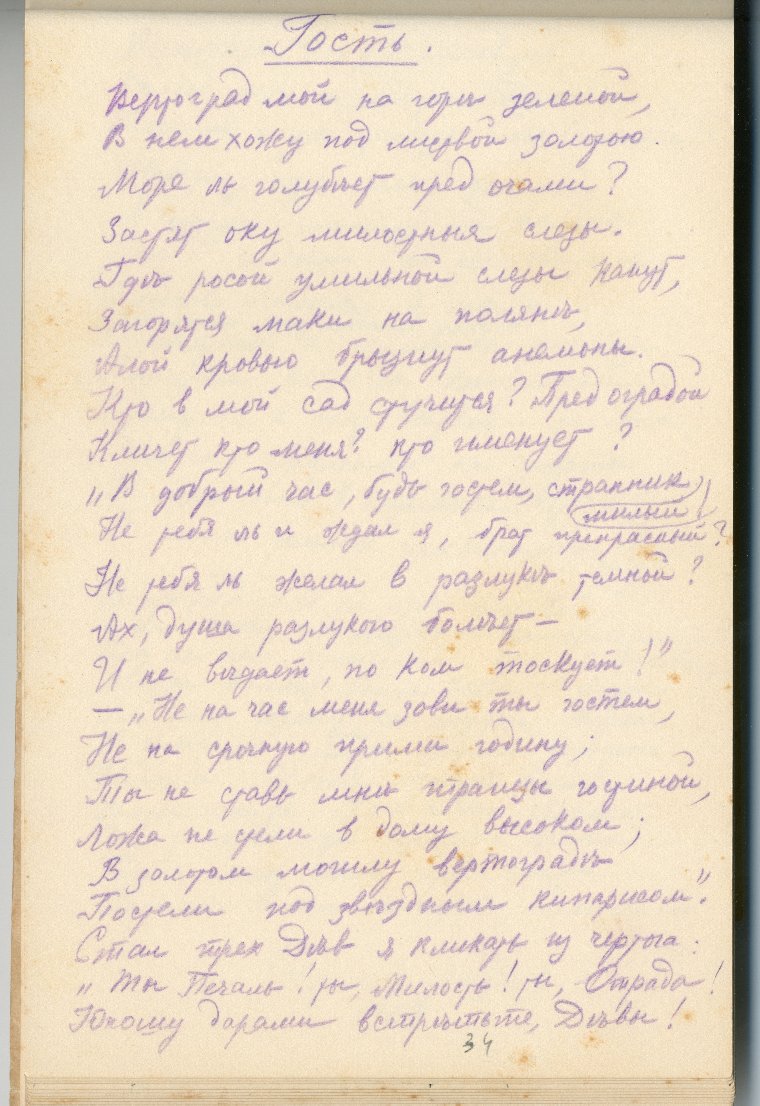 Гость.
Вертоград мой на горѣ зеленой,
В нем хожу под миртвой золотою.
Море ль голубѣет пред очами?
Застят оку милостныя слезы.
Гдѣ росой умильной слезы канут,
Загорятся маки на полянѣ,
Алой кровью брызнут анемоны.
Кто в мой сад стучится? Пред оградой
Кличет кто меня? кто именует?
„В добрый час, будь гостем, странник
милый!
Не тебя ль и ждал я, брат прекрасный?
Не тебя ль желал в разлукѣ темной?
Ах, душа разлукою болѣет —
И не вѣдает, по ком тоскует!"
— „Не на час меня зови ты гостем,
Не на срочную прими годину;
Ты не ставь мнѣ трапезы гостиной,
Ложа не стели в дому высоком;
В золотом могилу вертоградѣ
Постели под звѣздным кипарисом".
Стал трех Дѣв я кликать из чертога:
„Ты Печаль! ты, Милость! ты, Отрада!
Юношу дарами встрѣтьте, Дѣвы!
34